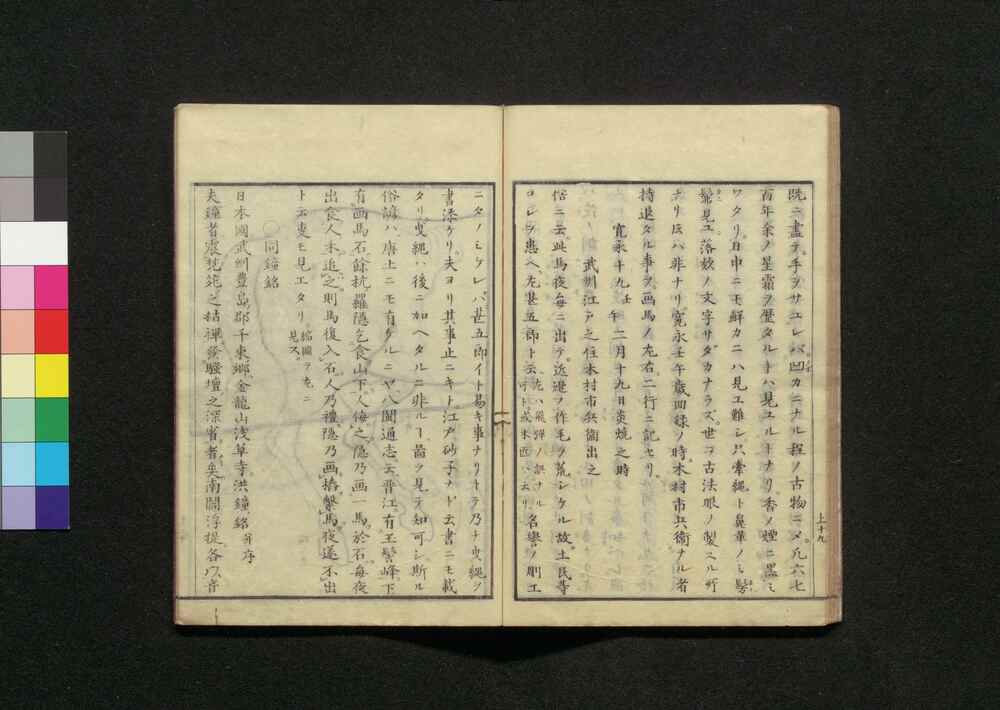 既ニ畫テ手ヲサエレバ凹カニナル程ノ古物ニメ凡六七
百年余ノ星霜ヲ歴タルトハ見ユルトナリ香ノ煙ニ黒ミ
ワタリ日中ニモ鮮カニハ見エ難シ只索縄ト鼻革ノミ髣
髴見ユ落款ノ文字サダカナラズ世ニ古法眼ノ製ヘル所
ナリ氏ハ非ナリ寛永壬午歳回録ノ時木村市兵衛ナル者
持退タル事ヲ画馬ノ左右二行ニ記セリ
寛永十九壬午二月十九日炎焼之時
武州江戸之住木村市兵衛出之
俗ニ云此馬夜毎ニ出テ近邊ノ作毛ヲ荒シケル故土民等
コレヲ患ヘ左甚五郎ト云 左ハ飛彈ノ訛ナル可ト或木匠ハ云リ 名譽ノ彫工
上十九
ニタノミケレバ甚五郎イト易キ事ナリトテ乃チ曳縄ヲ
書添ケリ夫ヨリ其事止ニキト江戸砂子ナド云書ニモ載
タリ曳縄ハ後ニ加ヘタルニ非ルヿ啚ヲ見テ知可シ斯ル
俗諺ハ唐土ニモ有ケルニヤ八閩通志云晋江有王髻峰下
有画馬石餘杭羅隠乞食山下人侮之隠乃画一馬於石毎夜
出食人禾追之則馬復入石人乃禮隠乃画樁繋馬夜遂不出
ト云叓モ見エタリ 縮圖ヲ左ニ見ス
〇同鐘銘
日本國武州豊島郡千束郷金龍山浅草寺洪鐘銘并序
夫鐘者震梵苑之枯禪發騷壇之深省者矣南閻浮提各以音